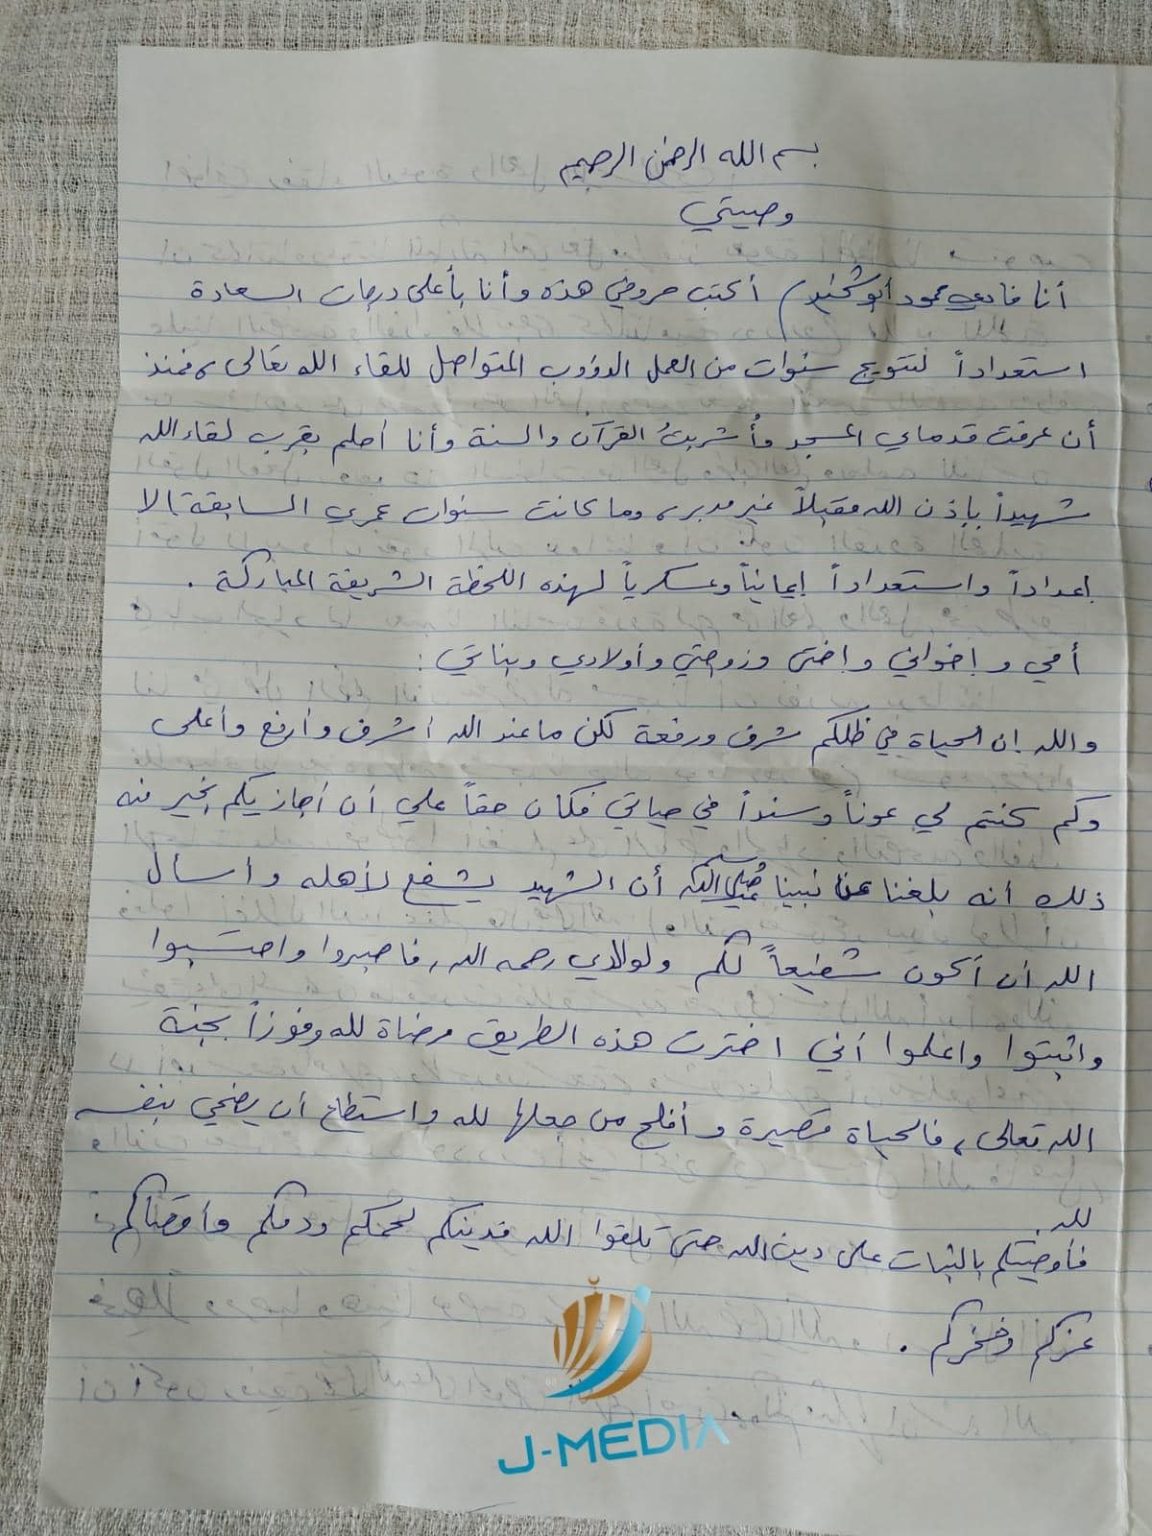 بسم الله الرحمن الرحيم
وصيتي
أنا فادي محمود أكتب حروفي هذه وأنا بأعلى درجات السعادة
استعداداً لتتويج سنوات من العمل الدؤوب المتواصل للقاء الله تعالى، فمنذ
أن عرفت قدماي المسجد وأُشربتُ القرآن والسنة وأنا أحلم بقرب لقاء الله
شهيداً بإذن الله مقبلاً غير مدبر، وما كانت سنوات عمري السابقة إلا
إعداداً واستعداداً إيمانياً وعسكرياً لهذه اللحظة الشريفة المباركة.
أمي وإخواني وإختي وزوجتي وأولادي وبناتي:
والله إن الحياة في ظلكم شرف ورفعة لكن ما عند الله أشرف وأرفع وأعلى
وكم كنتم لي عوناً وسنداً في حياتي فكان حقاً علي أن أجازيكم بخير منه
ذلك أنه بلغنا عن نبينا أن الشهيد يشفع لأهله وأسأل
الله أن أكون شفيعاً لكم ولوالدي رحمه الله، فاصبروا واحتسبوا
واثبتوا واعلموا أني اخترت هذه الطريق مرضاة لله وفوزاً بجنة
الله تعالى، فالحياة قصيرة وأفلح من جعلها لله واستطاع أن يضحي بنفسه
لله.
فأوصيتكم بالثبات على دين الله حتى تلقوا الله فدينكم لحمكم ودمكم
عزكم وفخركم.
J-MEDIA